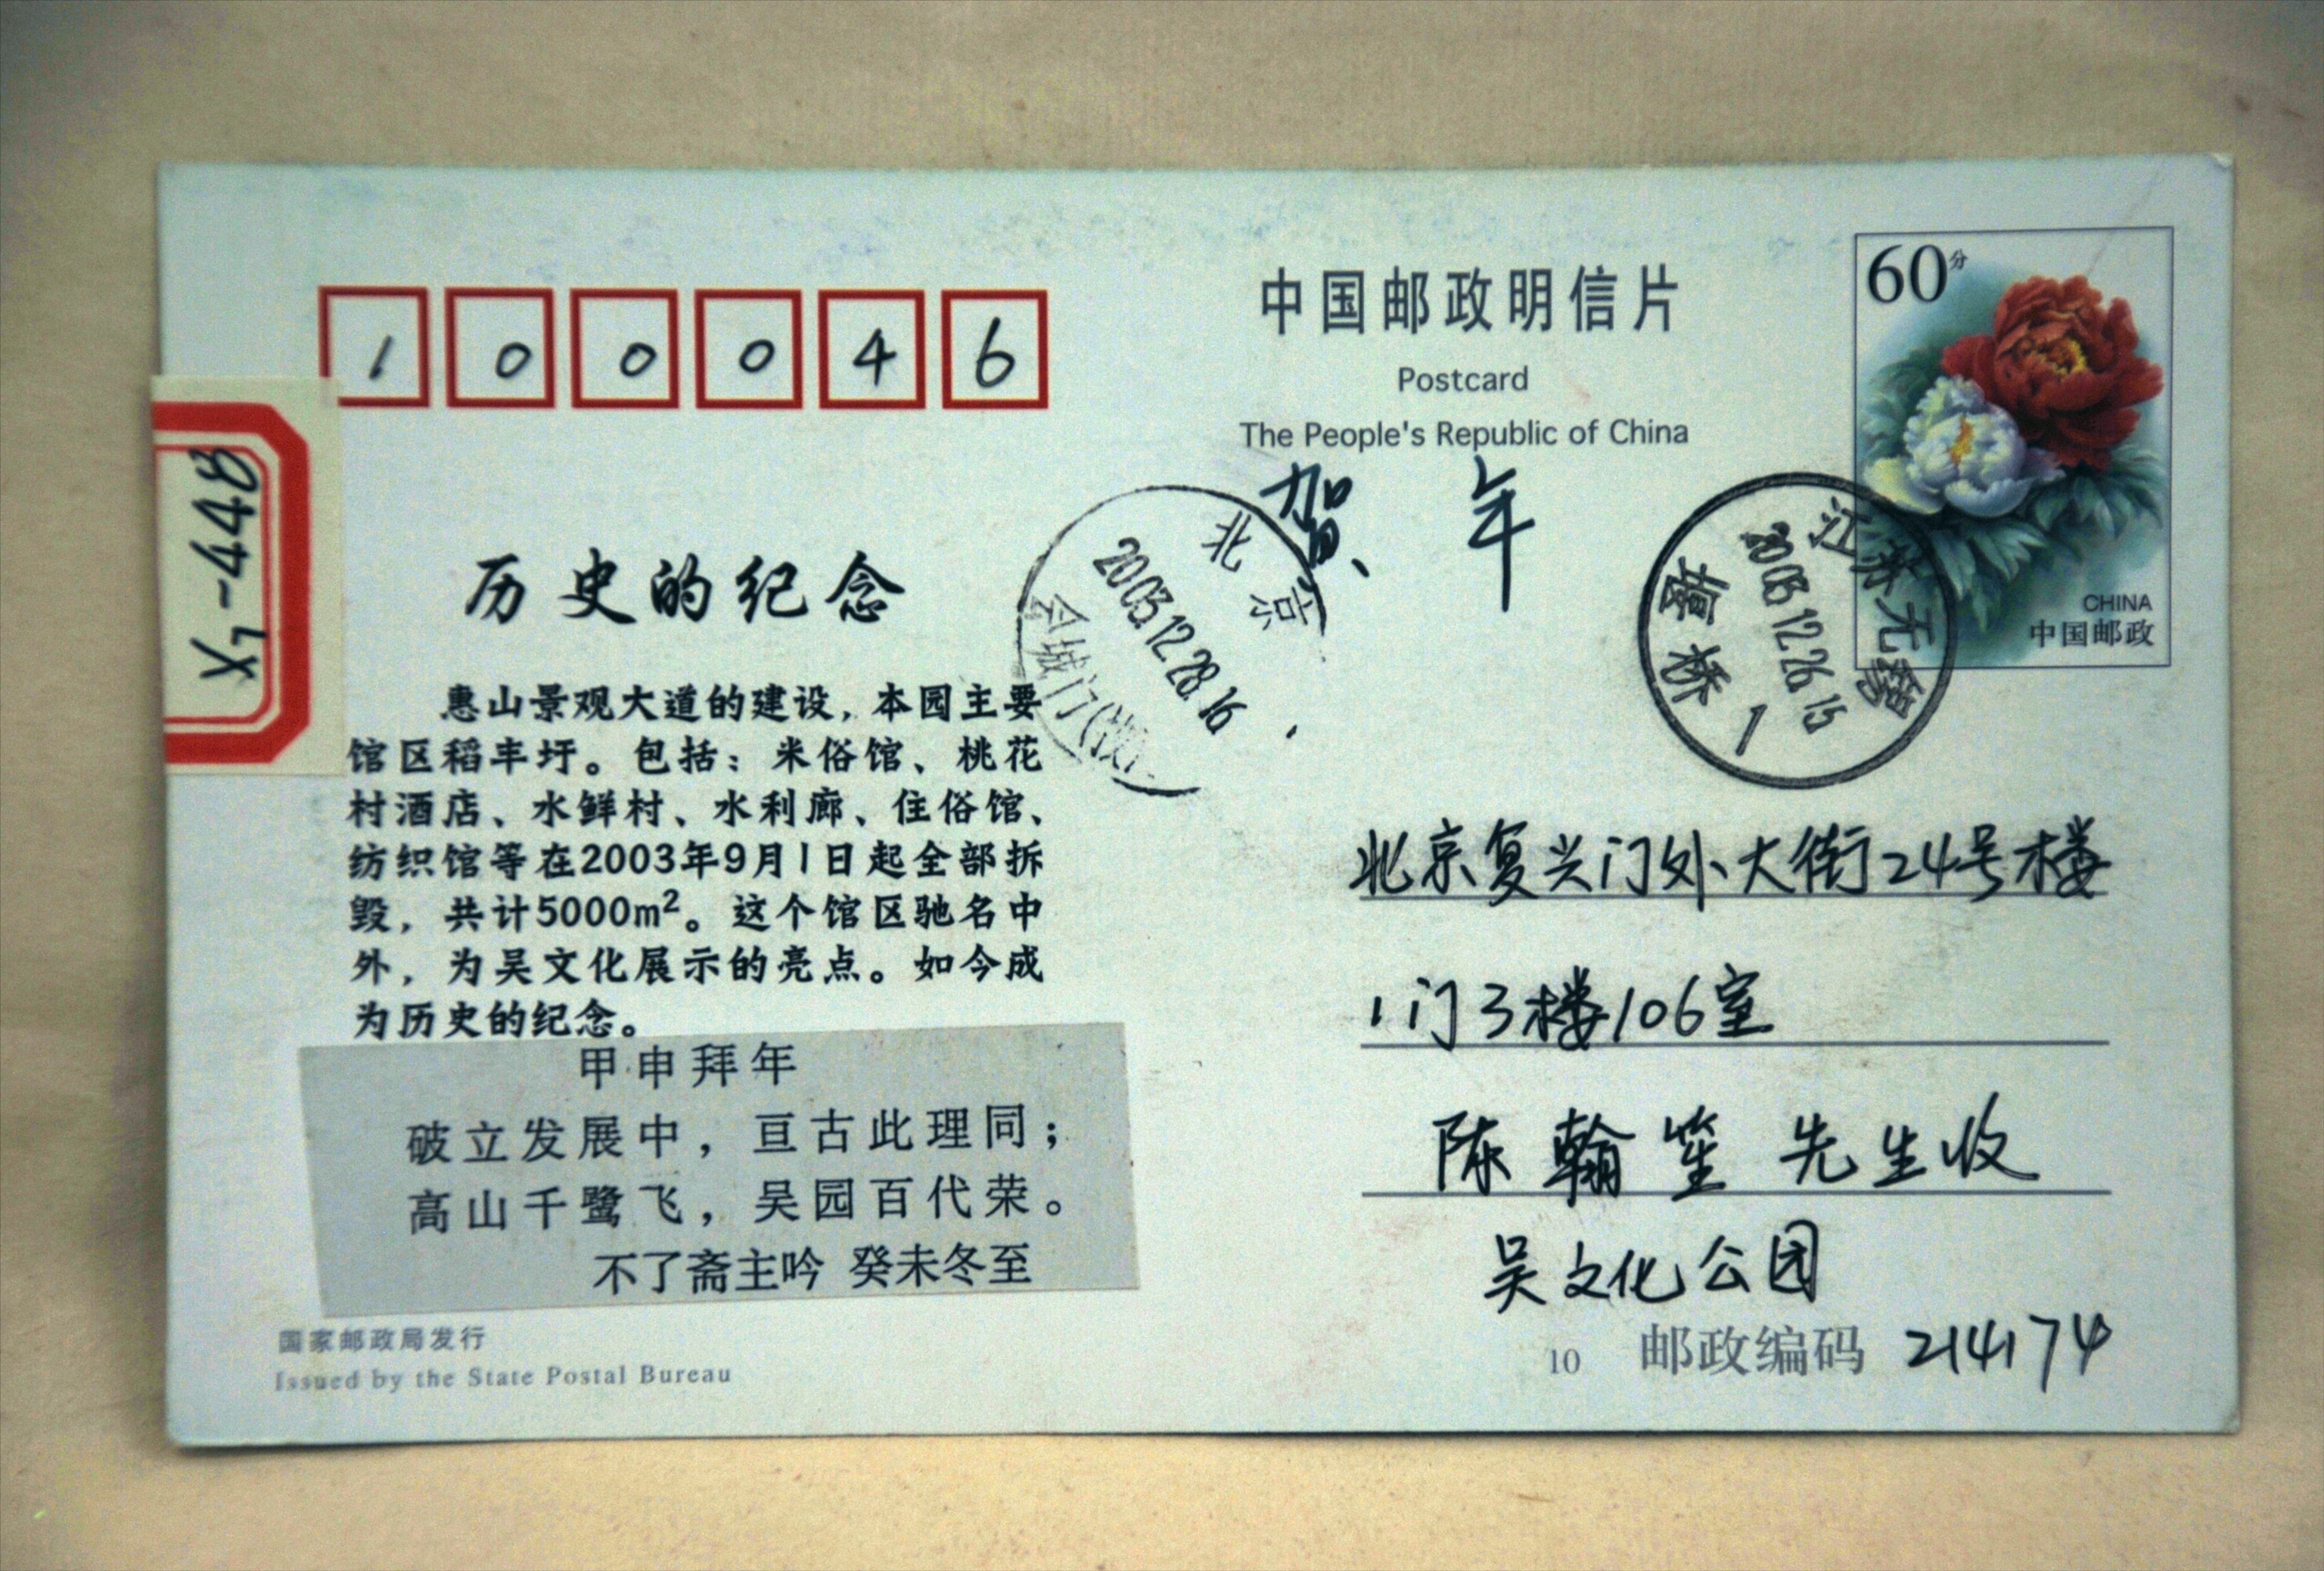 100046
中国邮政明信片
Postcard
The People's Republic of China
60分
CHINA
中国邮政
贺年
X7-448
北京
2003.12.28.16
会城门
江苏无锡
2003.12.26.15
堰桥
1
历史的纪念
惠山景观大道的建设，本园主要
馆区稻丰圩。包括：米俗馆、桃花
村酒店、水鲜村、水利廊、住俗馆、
纺织馆等在2003年9月1日起全部拆
毁，共计5000m²。这个馆区驰名中
外，为吴文化展示的亮点。如今成
为历史的纪念。
甲申拜年
破立发展中，亘古此理同；
高山千鹭飞，吴园百代荣。
不了斋主吟 癸未冬至
国家邮政局发行
Issued by the State Postal Bureau
北京复兴门外大街24号楼
1门3楼106室
陈翰笙 先生收
吴文化公园
10 邮政编码 214174